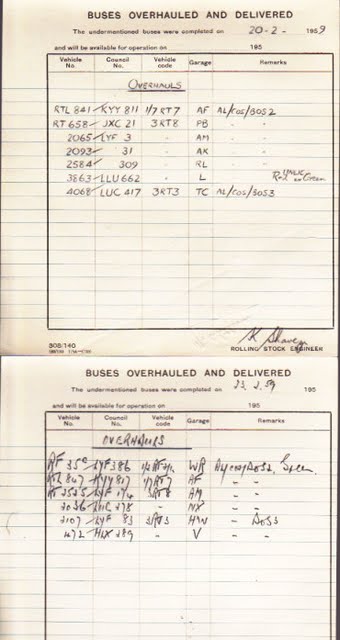 BUSES OVERHAULED AND DELIVERED
The undermentioned buses were completed on 20-2- 1959
and will be available for operation on 195
Vehicle No. Council No. Vehicle code Garage Remarks
OVERHAULS
RTL 841 KYY 811 1/7RT7 AF AL/COS/3052
RT 658 JXC 21 3RT8 PB - -
2065 LYF 3 - AM - -
2093 31 - AK - -
2584 309 - RL - -
3863 LLU 662 - L
4068 LUC 417 3RT3 TC AL/COS/3053
ROLLING STOCK ENGINEER
308/140
BUSES OVERHAULED AND DELIVERED
The undermentioned buses were completed on 23.2.59 195
and will be available for operation on 195
Vehicle No. Council No. Vehicle code Garage Remarks
OVERHAULS
LYF 386 WR
RTL 847 KYY 817 1/7RT7 AF - -
3RT8 AM - -
- NX - -
3107 LYF 83 3RT3 - 3053
472 HLX 289 - V - -